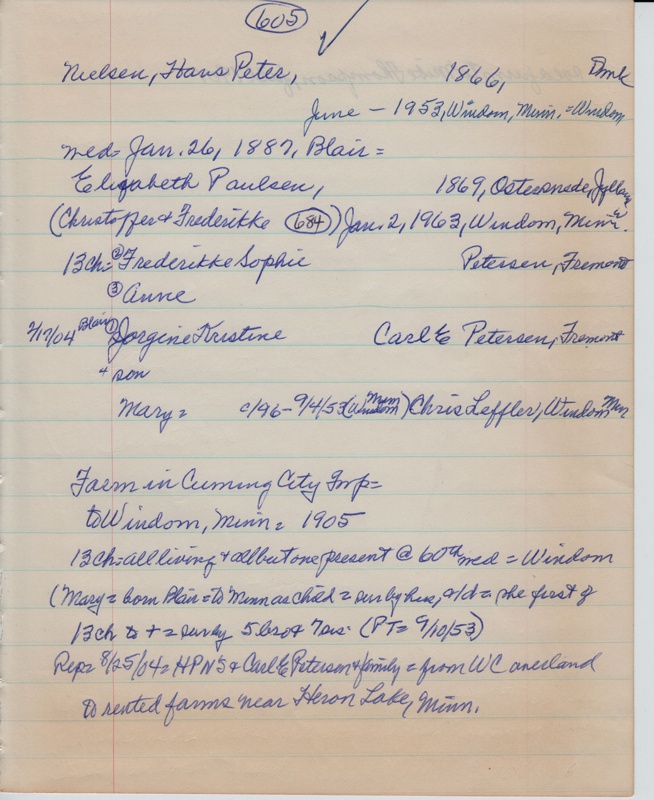 605 ✓
Nielsen, Hans Peter, 1866, Dmk
June - 1953, Windom, Minn. = Windom
med = Jan. 26, 1887, Blair =
Elizabeth Paulsen, 1869,
(Christoffer & Frederikke 684) Jan. 2, 1963, Windom, Minn.
13 ch = ② Frederikke Sophie Petersen, Fremont
③ Anne
2/17/04 Blair ① Jorgine Kristine Carl E Petersen, Fremont
+ son
Mary = c/96 - 9/4/53 (Windom Minn) Chris Leffler, Windom Mn
Farm in Cuming City Twp =
to Windom, Minn = 1905
13 ch = all living & all but one present @ 60th med = Windom
(Mary = born Blair = to Minn as child = sur by hus, & 1d = she first of
13 ch to + = sur by 5 bro & 7 sis (PT = 9/10/53)
Rep = 8/25/04 = HPN's & Carl E Petersen & family = from WC
to rented farms near Heron Lake, Minn.